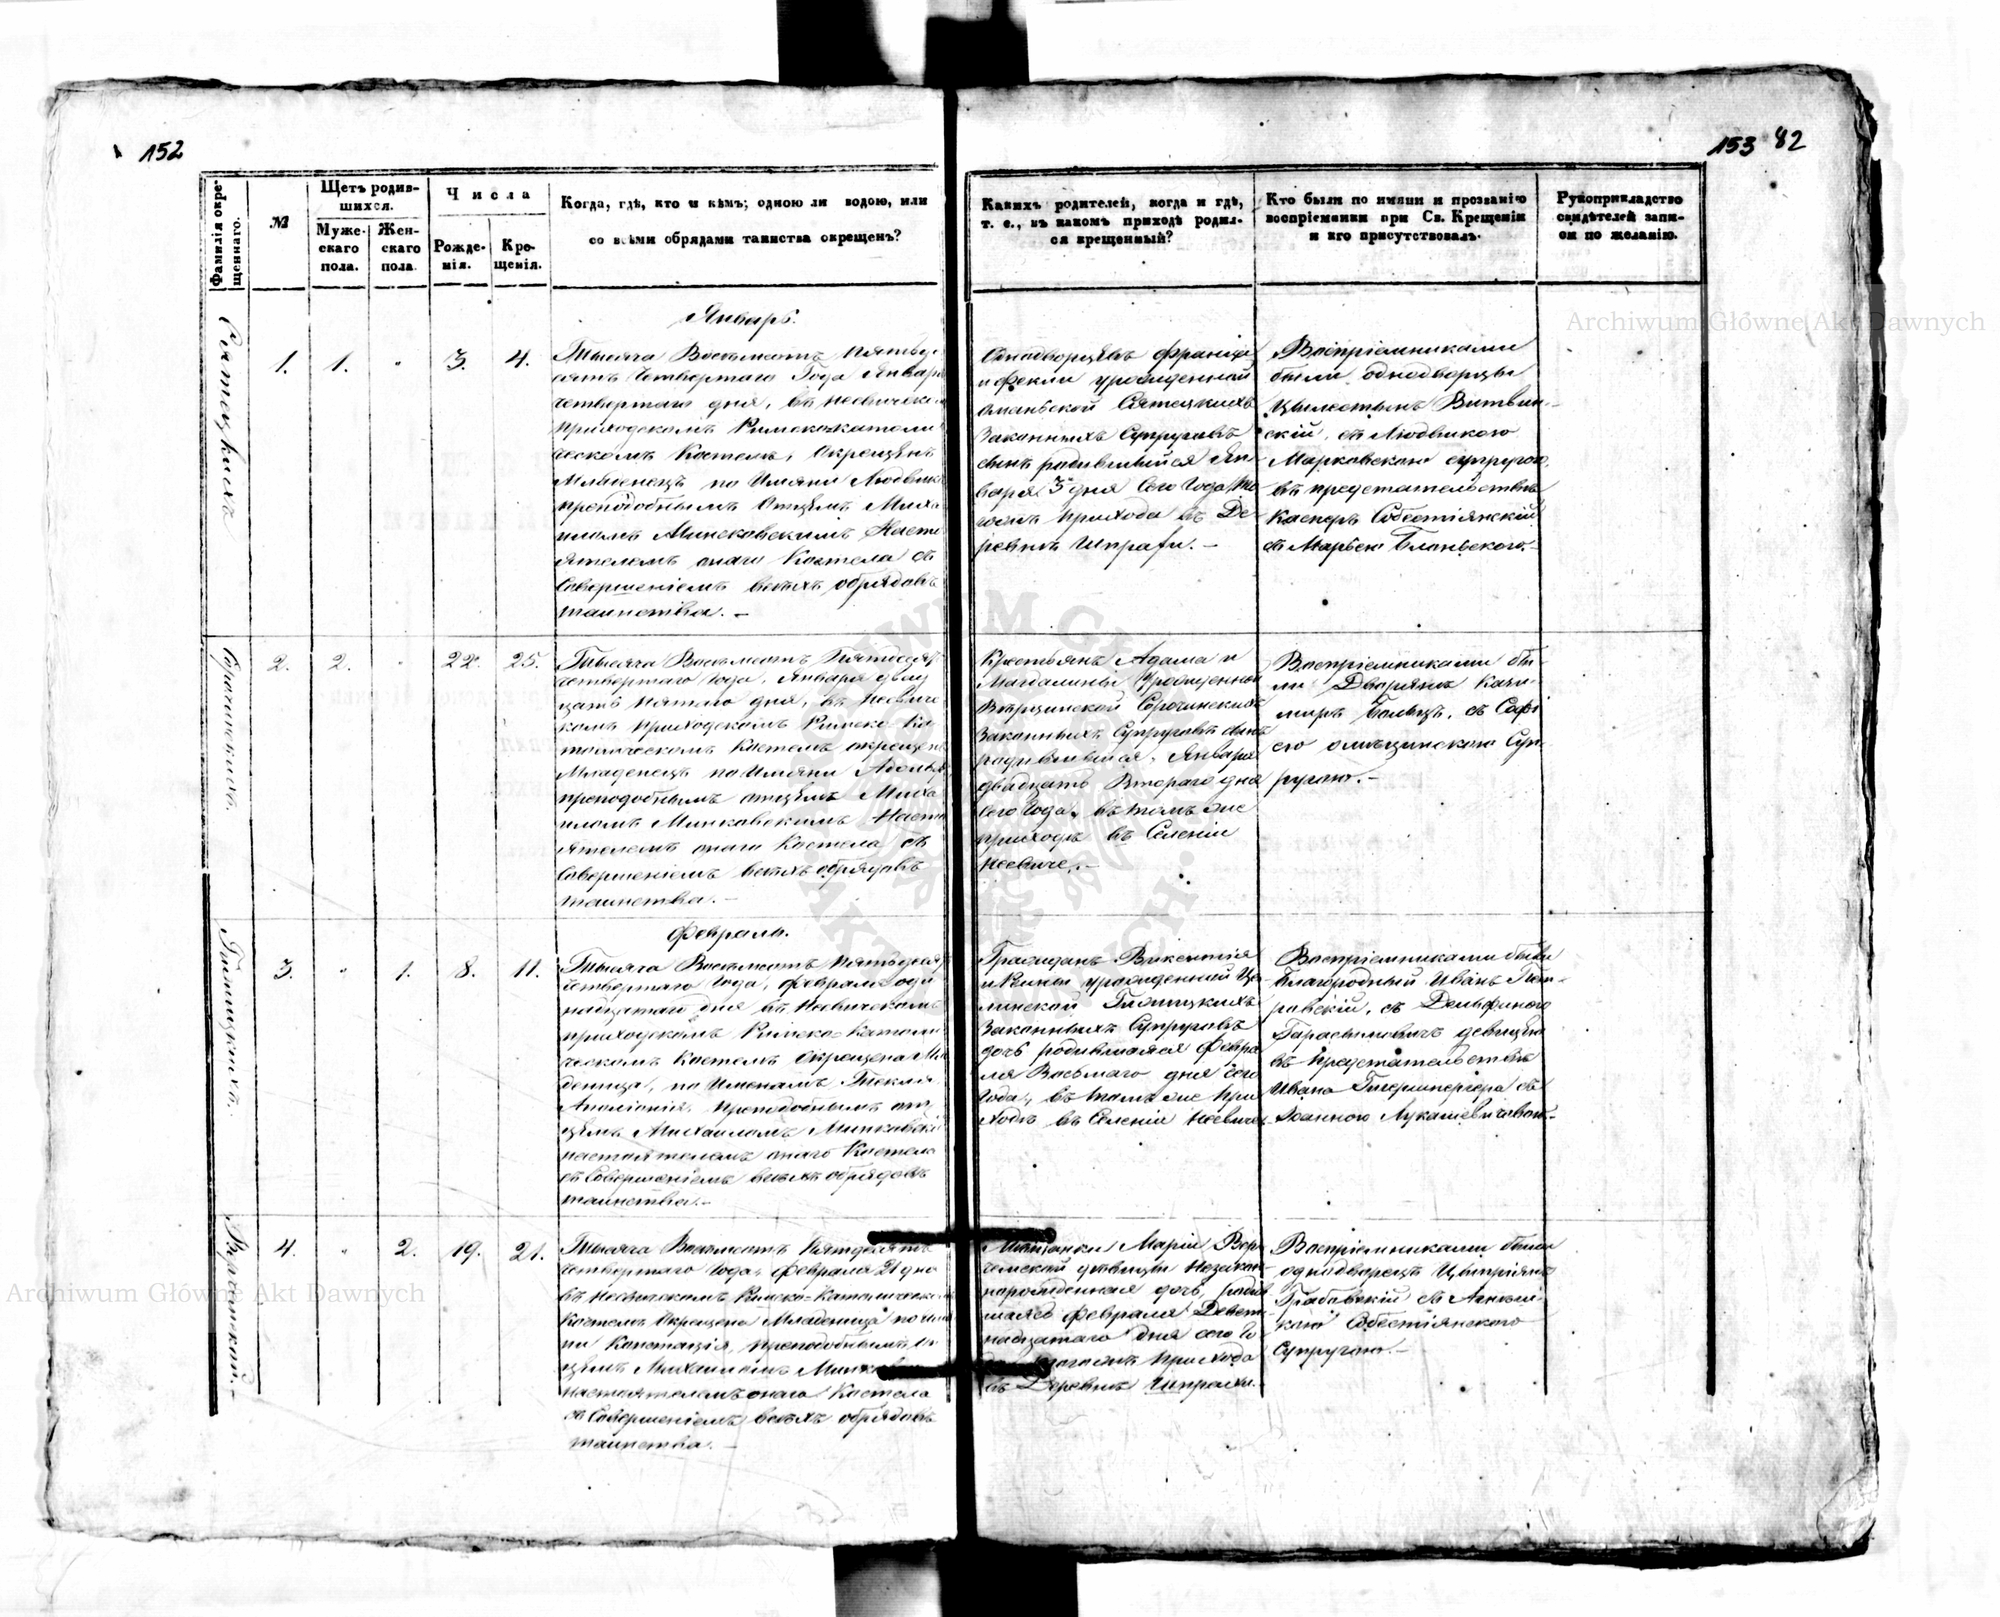 152
Фамилія окре-
щеннаго.
№
Щетъ родив-
шихся.
Муже-
скаго
пола.
Жен-
скаго
пола
Числа
Рожде-
нія.
Кре-
щенія.
Когда, гдѣ, кто и кѣмъ; одною ли водою, или
со всѣми обрядами таинства окрещенъ?
Январь.
1. 1. " 3. 4.
Тысяча Восемьсотъ Пятьде
сятъ Четвертаго Года Января
четвертаго дня, въ Несвическ
приходскомъ Римскокатоли
ческомъ Костелѣ, Окрещенъ
Младенецъ по Имяни Людвикъ
преподобнымъ Отцемъ Миха
иломъ Минсковскимъ Насто
ятелемъ онаго Костела съ
Совершеніемъ всѣхъ обрядовъ
таинства. —
2. 2. " 22. 25.
Тысяча Восемьсотъ Пятдесят
четвертаго Года, Января двад
цать пятаго дня, въ Несвиче
комъ приходскомъ Римско-Ка
толическомъ Костелѣ окрещенъ
Младенецъ по Имяни
преподобнымъ отцемъ Миха
иломъ Минковскимъ Насто
ятелемъ онаго Костела съ
Совершеніемъ всѣхъ обрядовъ
таинства. —
Февраль.
3. " 1. 8. 11.
Тысяча Восемьсотъ Пятьдесят
четвертаго Года, февраля оди
надцатаго дня въ Несвическомъ
приходскомъ Римско-Католи
ческомъ Костелѣ Окрещена Мла
деница, по Именамъ Текля
Аполіонія, преподобнымъ от
цемъ Михаиломъ Минковски
настоятелемъ онаго Костела
съ Совершеніемъ всѣхъ обрядовъ
таинства. —
4. " 2. 19. 21.
Тысяча Восемьсотъ Пятдесятъ
четвертаго Года, февраля 21 дня
въ Несвическомъ Римско-Католическо
Костелѣ Окрещена Младеница по имя
ни Констанція, преподобнымъ от
цемъ Михаиломъ Минков
настоятелемъ онаго Костела
съ Совершеніемъ всѣхъ обрядовъ
таинства. —
153 82
Какихъ родителей, когда и гдѣ,
т. е., въ какомъ приходѣ родил-
ся крещенный?
Кто были по имяни и прозванію
воспріемники при Св. Крещеніи
и кто присутствовалъ.
Рукоприкладство
свидѣтелей запи-
си по желанію.
Однодворцевъ Франца
и Феклы урожденной
Сятецкихъ
Законныхъ Супруговъ
сынъ родившійся Ян-
варя 3 дня Сего Года то
гожъ прихода въ Де
ревнѣ
Воспріемниками
были однодворцы
Витвин-
скій, съ Людвикою
Марковскою супругою,
въ предстательствѣ
Касперъ Собестіянскій
съ Марьею
Крестьянъ Адама и
Магдалины Урожденной
Сорочинскихъ
Законныхъ Супруговъ сынъ
родившійся, Января
двадцать Втораго дня
Сего Года, въ томъ же
приходѣ въ Селеніи
Несвиче. —
Воспріемниками бы-
ли Дворянъ Кази-
миръ съ Софі
ею Суп-
ругою. —
Гражданъ Викентія
и урожденной Це
линской
Законныхъ Супруговъ
дочь родившаяся Февра
ля Восьмаго дня сего
Года, въ томъ же при
ходѣ въ Селеніи Несвиче
Воспріемниками были
Благородный Иванъ Пет-
ровскій, съ Дельфиною
Гарасимовичъ девицею
въ Предстательствѣ
Ивана съ
Іоанною Лукашевичовою
Мѣщанки Маріи
девицы Незакон-
норожденная дочь, родив
шаясь февраля Девят
надцатаго дня сего Го
да тогожъ прихода
въ Деревнѣ
Воспріемниками были
однодворецъ Ципріянъ
Грабовскій съ Агнеш-
кою Собестіянскою
Супругою. —
Archiwum Główne Akt Dawnych
Archiwum Główne Akt Dawnych